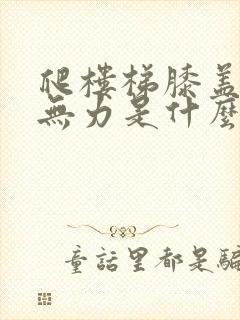 爬樓梯膝蓋
無力是什麼
童話里都是騙